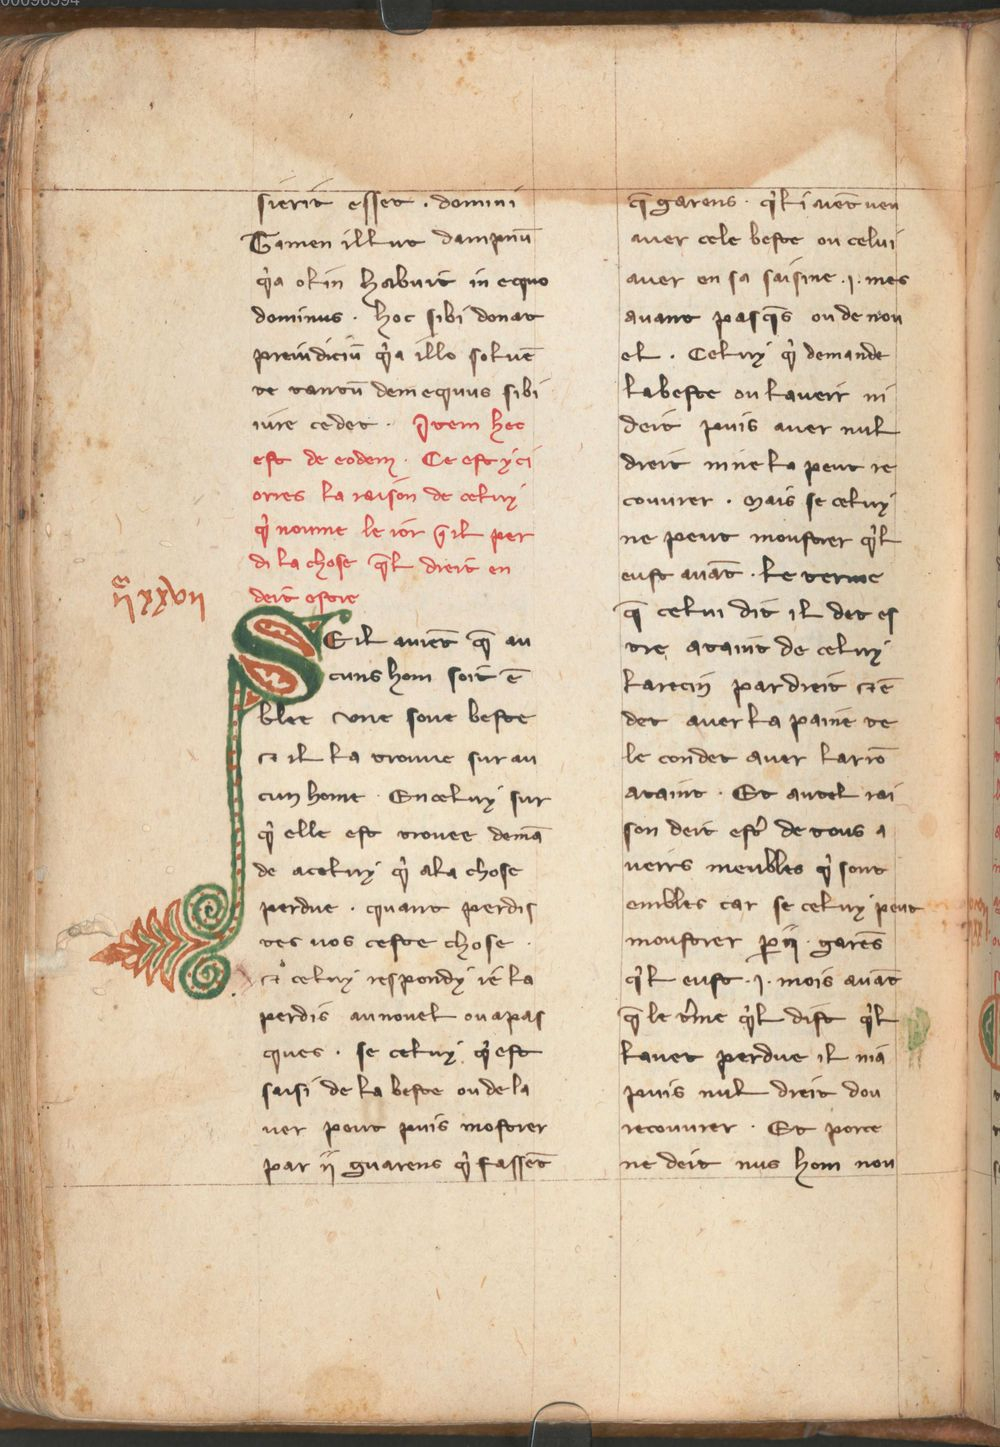 sierit esset . domini
Tamen illut dampnū
q̍a olim habuit in equo
dominus . hoc sibi donat
preiudiciū q̍a illo soluē
te tantū dem equus sibi
iure cedet . Item hec
est de eodem . Ce est yci
orres la raison de celuy
q̍ noume le ior q̄ il per
di la chose q̄l dreit en
deit estre
SE il auiēt q̄ au
cuns hom soit ē
blee vne soue beste
⁊ il la trouue sur au
cun home . En celuy sur
q̍ elle est trouee demā
de a celuy q̍ a la chose
perdue . quant perdis
tes uos ceste chose .
⁊ celuy respondy ie la
perdis au nouel ou a pas
ques . se celuy q̍ est
saisi de la beste ou de la
uer peut puis mostrer
par ij guarens q̍ fassēt
q̄ garens . q̍l i auēt ueu
auer cele beste ou celui
auer en sa saisine . j . mes
auant pasq̄s ou de nou
el . Celuy q̍ demande
la beste ou laueir ni
deit puis auer nul
dreit ni ne la peut re
couurer . Mais se celuy
ne peut moustrer q̍l
eust auāt . le terme
q̄ celui dit il det es
tre ataint de celuy
larecin par dreit ⁊ ē
det auer la paine te
le con det auer larrō
ataint . Et autel rai
son deit est̍ de tous a
ueirs meubles q̍ sont
embles car se celuy peut
moustrer p̱ ij . garēs
q̍l eust . j . mois auāt
q̄ le t̍me q̍l dist q̍l
lauet perdue il nia
puis nul dreit dou
recouurer . Et porce
ne deit nus hom nou
ijᶜxxvii